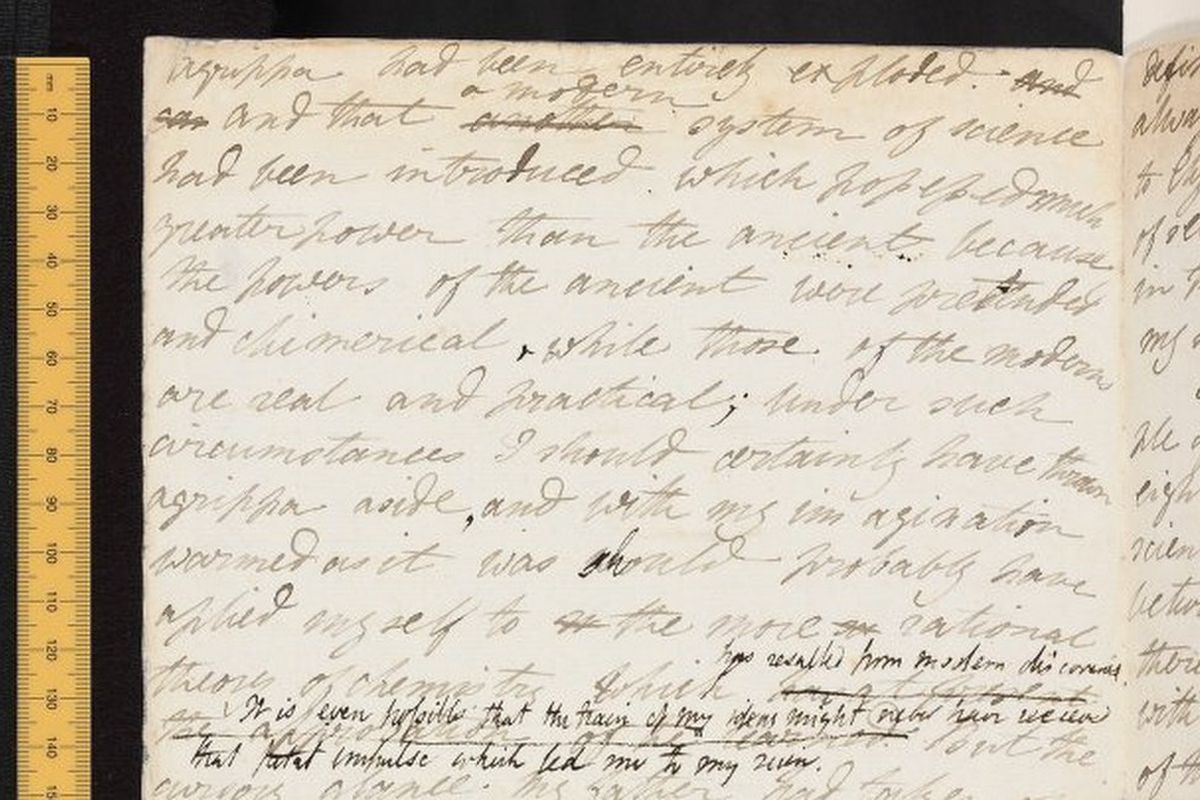 agrippa had been entirely exploded. and
a modern
and that another system of science
had been introduced which possessed much
greater power than the ancient because
the powers of the ancient were pretended
and chimerical, while those of the modern
are real and practical; under such
circumstances I should certainly have thrown
agrippa aside, and with my imagination
warmed as it was should probably have
aplied myself to the more rational
has resulted from modern discoveries.
theory of chemistry which
It is even possible that the train of my ideas might never have received
of the But the
that fatal impulse which led me to my ruin.
cursory glance my father had taken